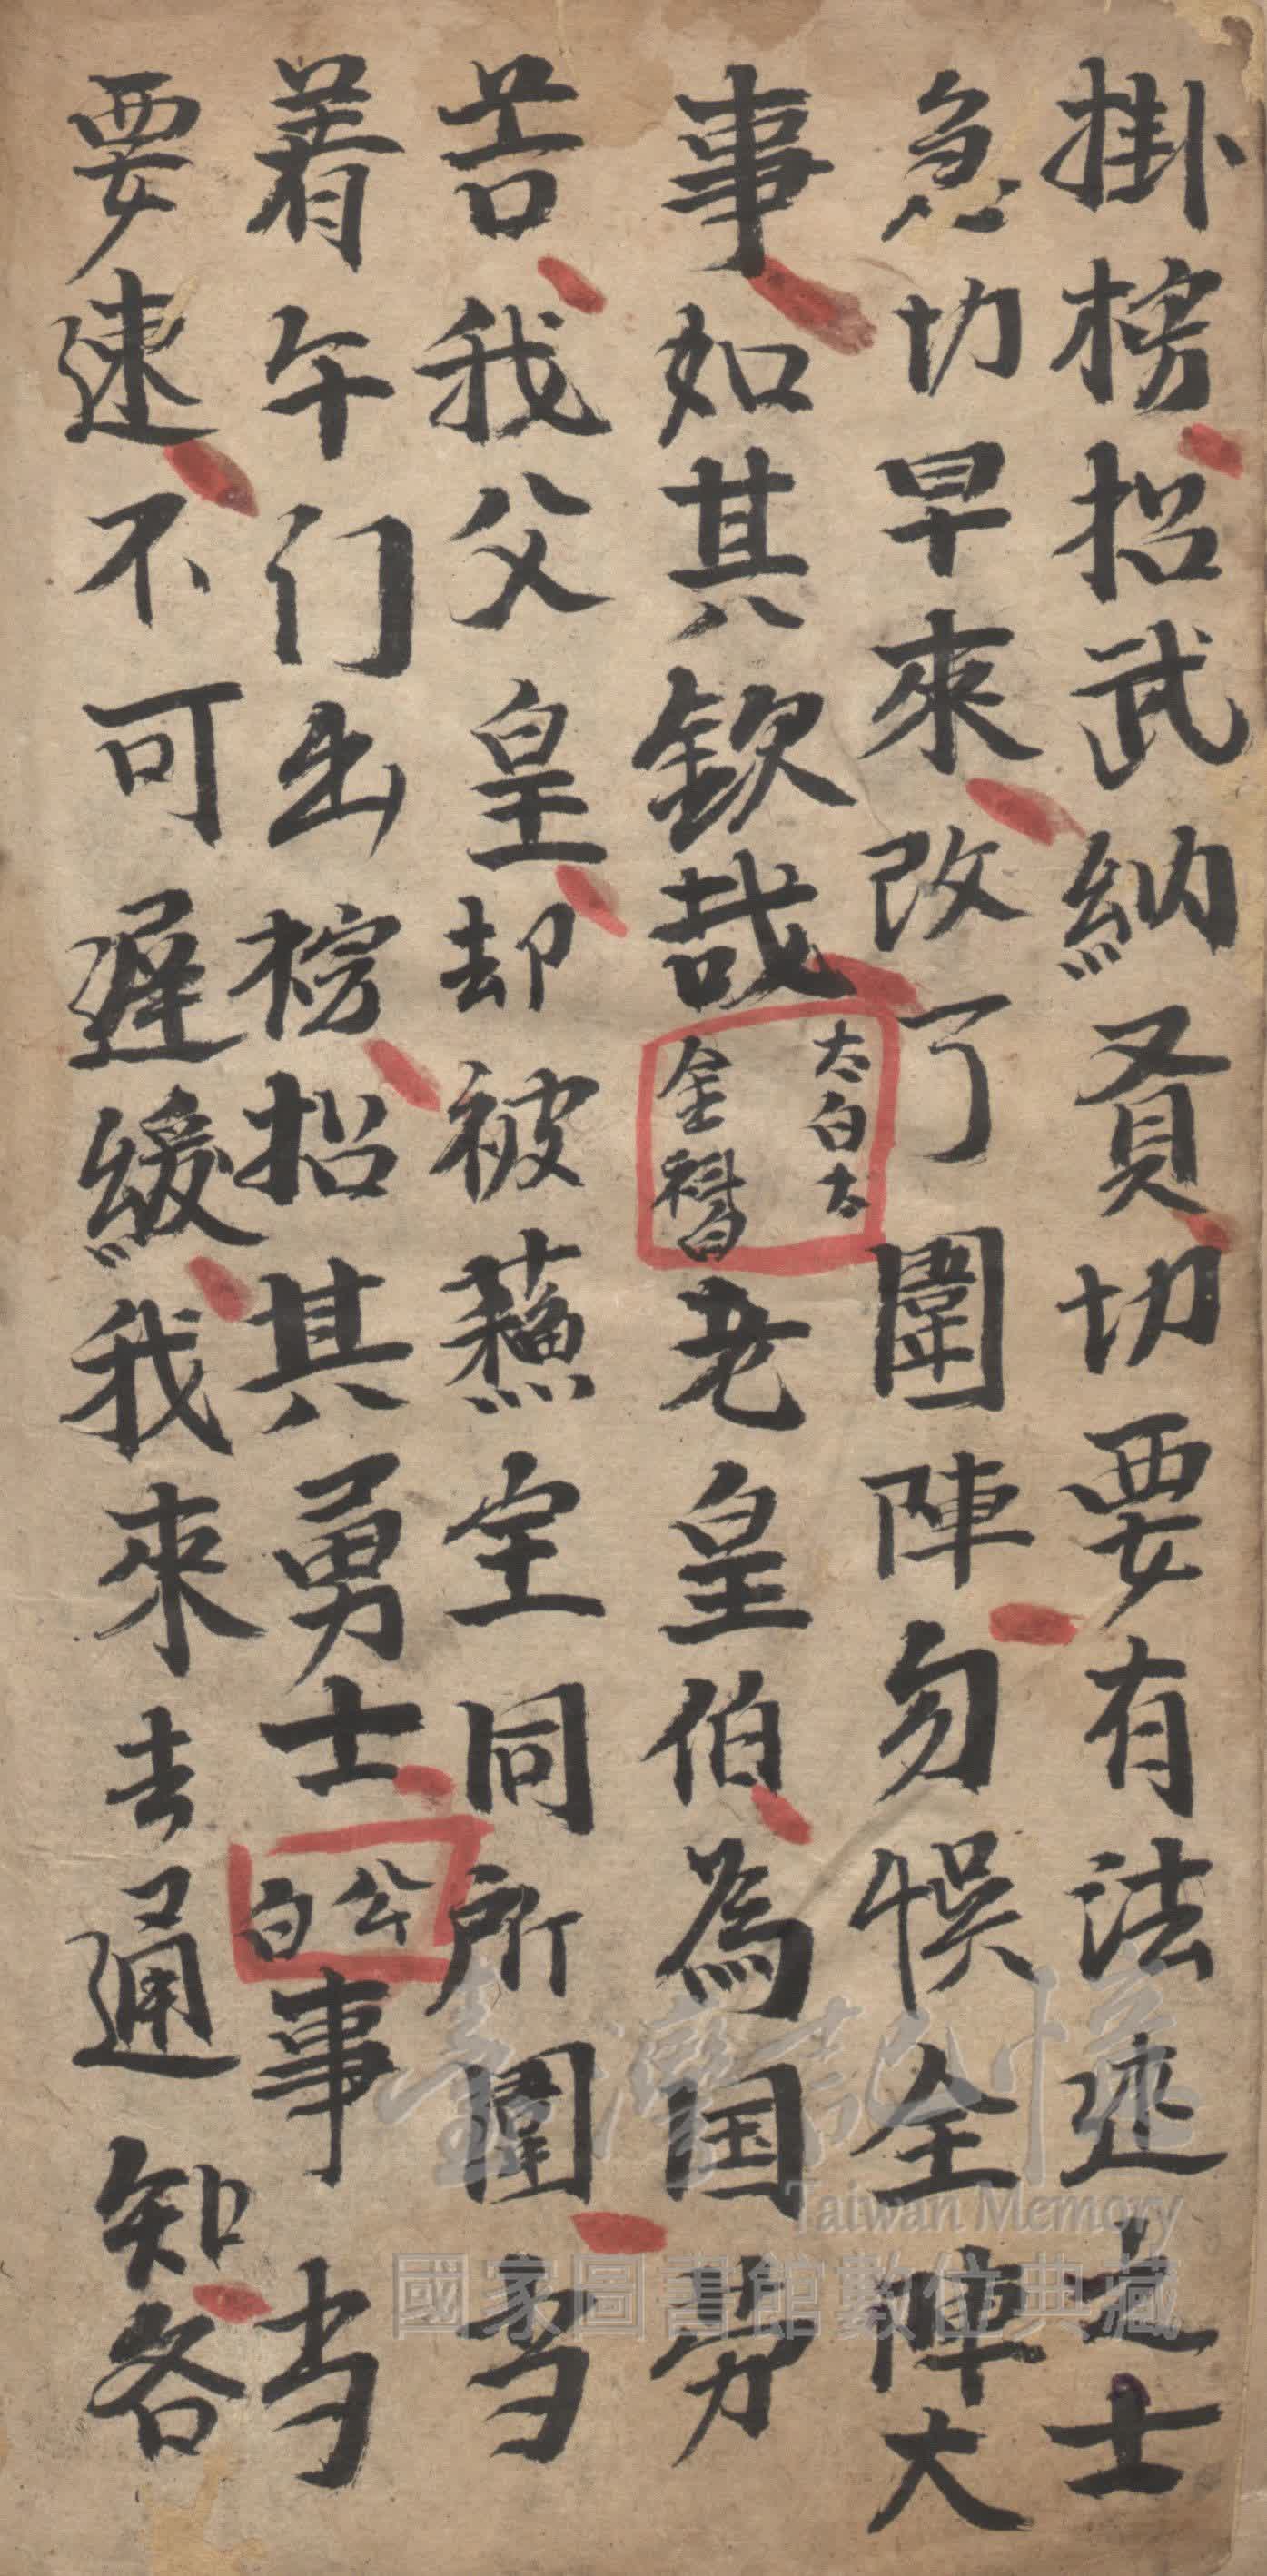 掛榜招武納賢切要有法述之士
急切早來改了圍陣勿悮全陣大
事如其欽哉太白太金褶白老皇伯為国勞
苦我父皇却被蘓宝同所圍当
着午门出榜招其勇士公白事当
要速不可遲緩我來去通知各
臺灣記憶
Taiwan Memory
國家圖書館數位典藏